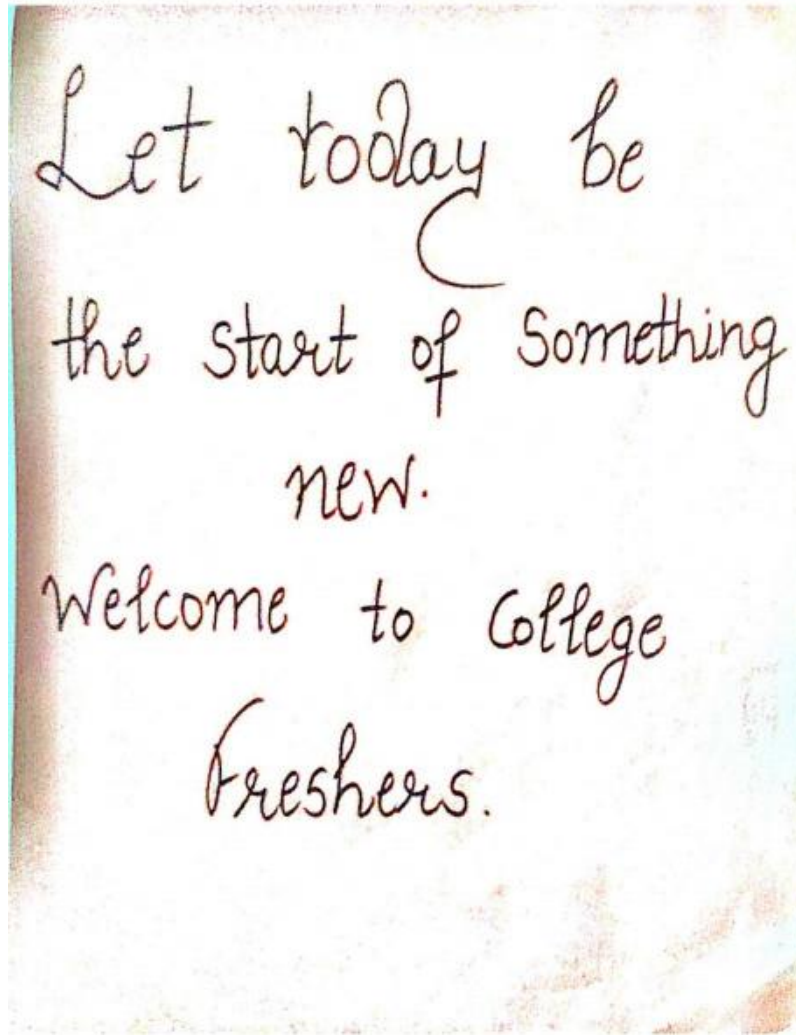 Let today be
the start of Something
new.
Welcome to College
Freshers.